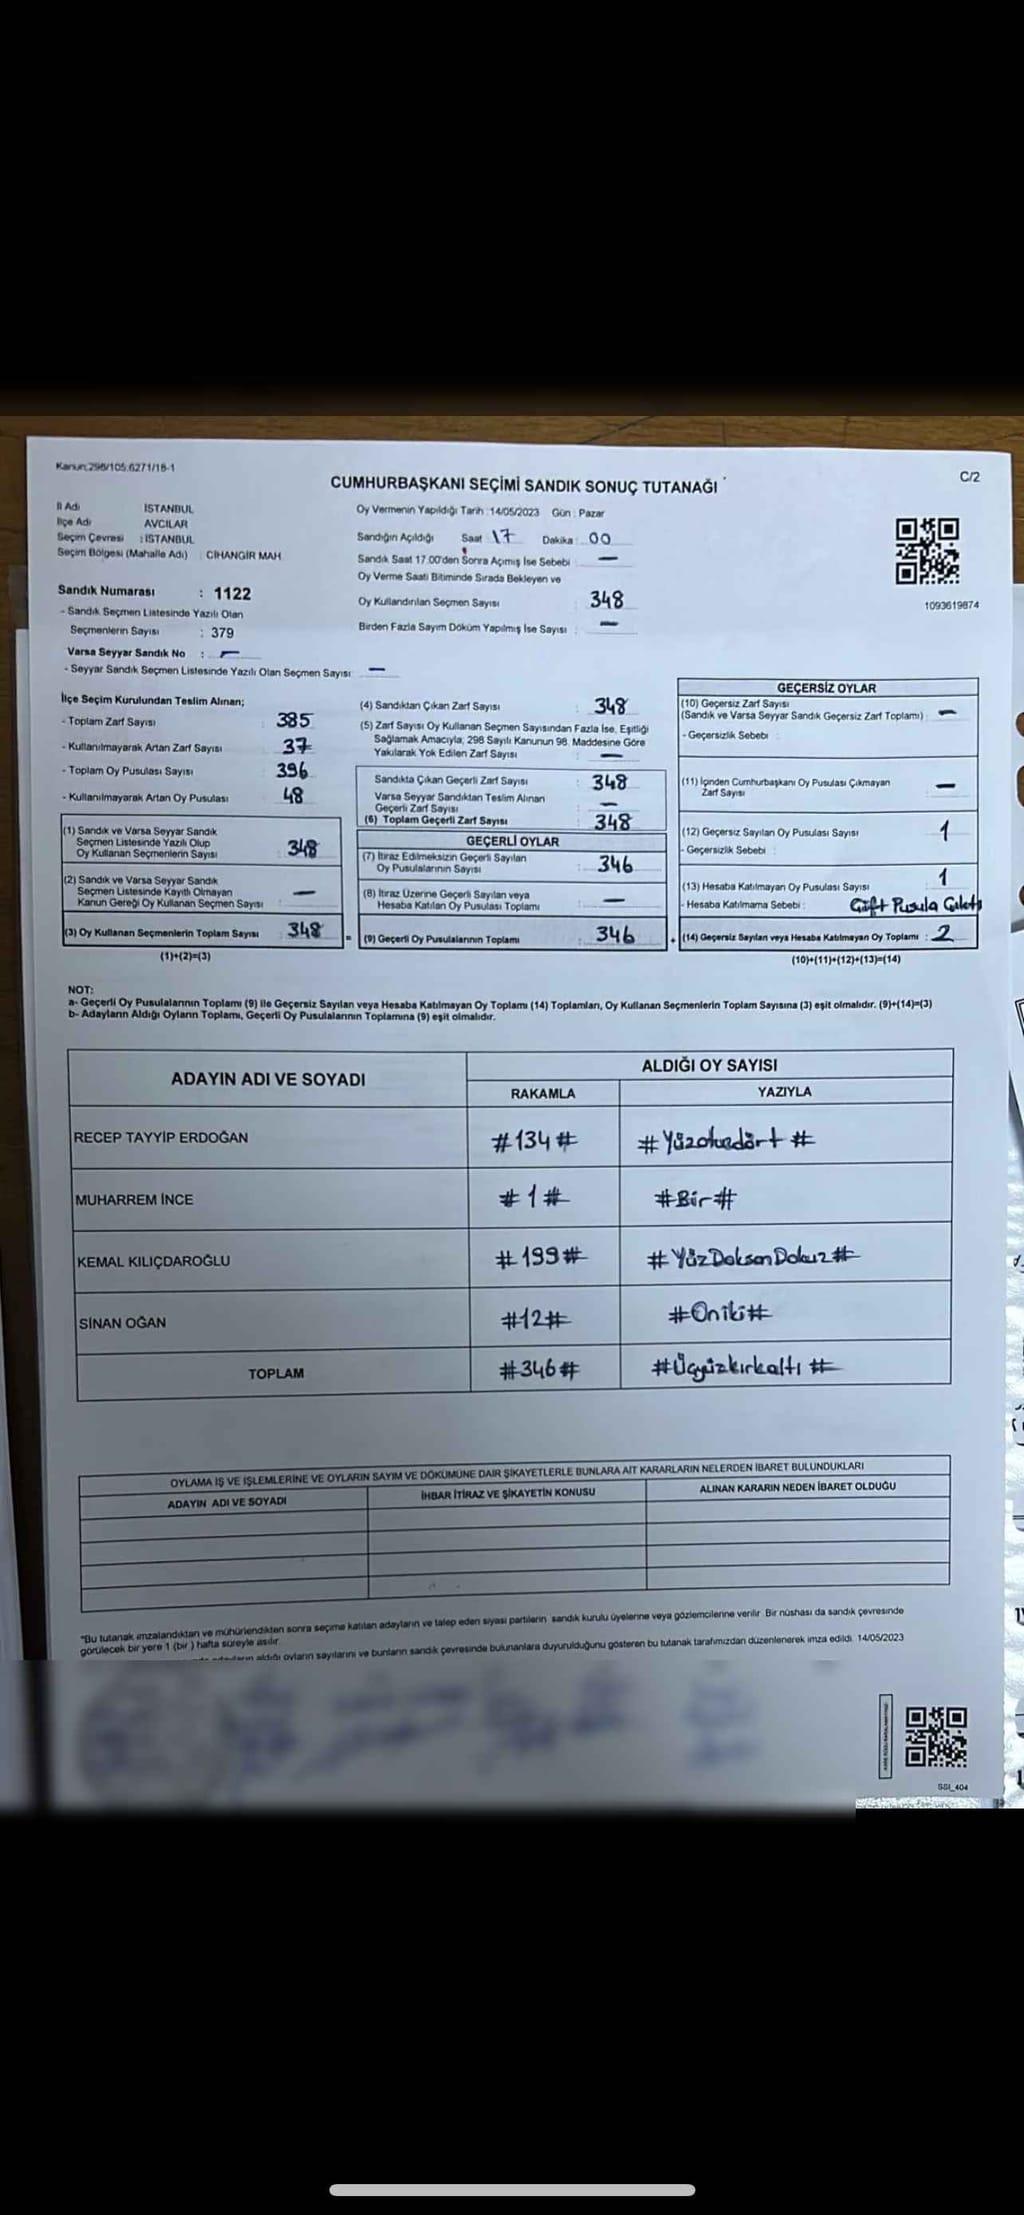 Kanun:298/105.6271/18-1
C/2
CUMHURBAŞKANI SEÇİMİ SANDIK SONUÇ TUTANAĞI
İl Adı İSTANBUL
İlçe Adı AVCILAR
Seçim Çevresi : İSTANBUL
Seçim Bölgesi (Mahalle Adı) : CİHANGİR MAH.
Sandık Numarası : 1122
- Sandık Seçmen Listesinde Yazılı Olan
Seçmenlerin Sayısı : 379
Varsa Seyyar Sandık No : —
- Seyyar Sandık Seçmen Listesinde Yazılı Olan Seçmen Sayısı: —
Oy Vermenin Yapıldığı Tarih : 14/05/2023 Gün : Pazar
Sandığın Açıldığı Saat 17 Dakika : 00
Sandık Saat 17.00'den Sonra Açılmış İse Sebebi : —
Oy Verme Saati Bitiminde Sırada Bekleyen ve
Oy Kullandırılan Seçmen Sayısı : 348
Birden Fazla Sayım Döküm Yapılmış İse Sayısı : —
1093619874
İlçe Seçim Kurulundan Teslim Alınan;
- Toplam Zarf Sayısı : 385
- Kullanılmayarak Artan Zarf Sayısı : 37
- Toplam Oy Pusulası Sayısı : 396
- Kullanılmayarak Artan Oy Pusulası : 48
(1) Sandık ve Varsa Seyyar Sandık
Seçmen Listesinde Yazılı Olup
Oy Kullanan Seçmenlerin Sayısı : 348
(2) Sandık ve Varsa Seyyar Sandık
Seçmen Listesinde Kayıtlı Olmayan
Kanun Gereği Oy Kullanan Seçmen Sayısı : —
(3) Oy Kullanan Seçmenlerin Toplam Sayısı : 348
(1)+(2)=(3)
(4) Sandıktan Çıkan Zarf Sayısı : 348
(5) Zarf Sayısı Oy Kullanan Seçmen Sayısından Fazla İse, Eşitliği
Sağlamak Amacıyla, 298 Sayılı Kanunun 98. Maddesine Göre
Yakılarak Yok Edilen Zarf Sayısı : —
Sandıkta Çıkan Geçerli Zarf Sayısı : 348
Varsa Seyyar Sandıktan Teslim Alınan
Geçerli Zarf Sayısı : —
(6) Toplam Geçerli Zarf Sayısı : 348
GEÇERLİ OYLAR
(7) İtiraz Edilmeksizin Geçerli Sayılan
Oy Pusulalarının Sayısı : 346
(8) İtiraz Üzerine Geçerli Sayılan veya
Hesaba Katılan Oy Pusulası Toplamı : —
= (9) Geçerli Oy Pusulalarının Toplamı : 346
GEÇERSİZ OYLAR
(10) Geçersiz Zarf Sayısı
(Sandık ve Varsa Seyyar Sandık Geçersiz Zarf Toplamı) : —
- Geçersizlik Sebebi :
(11) İçinden Cumhurbaşkanı Oy Pusulası Çıkmayan
Zarf Sayısı : —
(12) Geçersiz Sayılan Oy Pusulası Sayısı : 1
- Geçersizlik Sebebi :
(13) Hesaba Katılmayan Oy Pusulası Sayısı : 1
- Hesaba Katılmama Sebebi : Çift Pusula
+ (14) Geçersiz Sayılan veya Hesaba Katılmayan Oy Toplamı : 2
(10)+(11)+(12)+(13)=(14)
NOT:
a- Geçerli Oy Pusulalarının Toplamı (9) ile Geçersiz Sayılan veya Hesaba Katılmayan Oy Toplamı (14) Toplamları, Oy Kullanan Seçmenlerin Toplam Sayısına (3) eşit olmalıdır. (9)+(14)=(3)
b- Adayların Aldığı Oyların Toplamı, Geçerli Oy Pusulalarının Toplamına (9) eşit olmalıdır.
ADAYIN ADI VE SOYADI
ALDIĞI OY SAYISI
RAKAMLA YAZIYLA
RECEP TAYYİP ERDOĞAN #134# #Yüzotuzdört#
MUHARREM İNCE #1# #Bir#
KEMAL KILIÇDAROĞLU #199# #YüzDoksanDokuz#
SİNAN OĞAN #12# #Oniki#
TOPLAM #346# #Üçyüzkırkaltı#
OYLAMA İŞ VE İŞLEMLERİNE VE OYLARIN SAYIM VE DÖKÜMÜNE DAİR ŞİKAYETLERLE BUNLARA AİT KARARLARIN NELERDEN İBARET BULUNDUKLARI
ADAYIN ADI VE SOYADI İHBAR İTİRAZ VE ŞİKAYETİN KONUSU ALINAN KARARIN NEDEN İBARET OLDUĞU
"Bu tutanak imzalandıktan ve mühürlendikten sonra seçime katılan adayların ve talep eden siyasi partilerin sandık kurulu üyelerine veya gözlemcilerine verilir. Bir nüshası da sandık çevresinde
görülecek bir yere 1 (bir) hafta süreyle asılır.
adayların aldığı oyların sayılarını ve bunların sandık çevresinde bulunanlara duyurulduğunu gösteren bu tutanak tarafımızdan düzenlenerek imza edildi. 14/05/2023
SSI_404